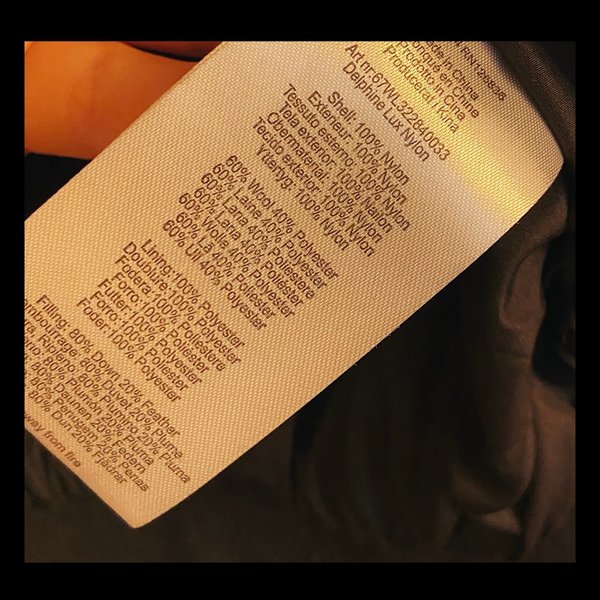 RN125636
Made in China
Prodotto in Cina
Producerat i Kina
Art nr: 67WL322840033
Delphine Lux Nylon
Shell: 100% Nylon
Exterieur: 100% Nylon
Tessuto esterno: 100% Nylon
Tela exterior: 100% Nailon
Obermaterial: 100% Nylon
Tecido exterior: 100% Nylon
Yttertyg: 100% Nylon
60% Wool 40% Polyester
60% Laine 40% Polyester
60% Lana 40% Poliestere
60% Lana 40% Poliester
60% Wolle 40% Polyester
60% Lã 40% Poliester
60% Ull 40% Polyester
Lining:100% Polyester
Doublure:100% Polyester
Fodera: 100% Poliestere
Forro: 100% Poliester
Futter: 100% Polyester
Forro: 100% Poliester
Foder: 100% Polyester
Filling: 80% Down 20% Feather
80% Divet 20% Plume
Ripieno: 80% Piumino 20% Piuma
80% Plumón 20% Pluma
80% Daunen 20% Federn
80% Penugem 20% Penas
80% Dun 20% Fjädrar
away from fire